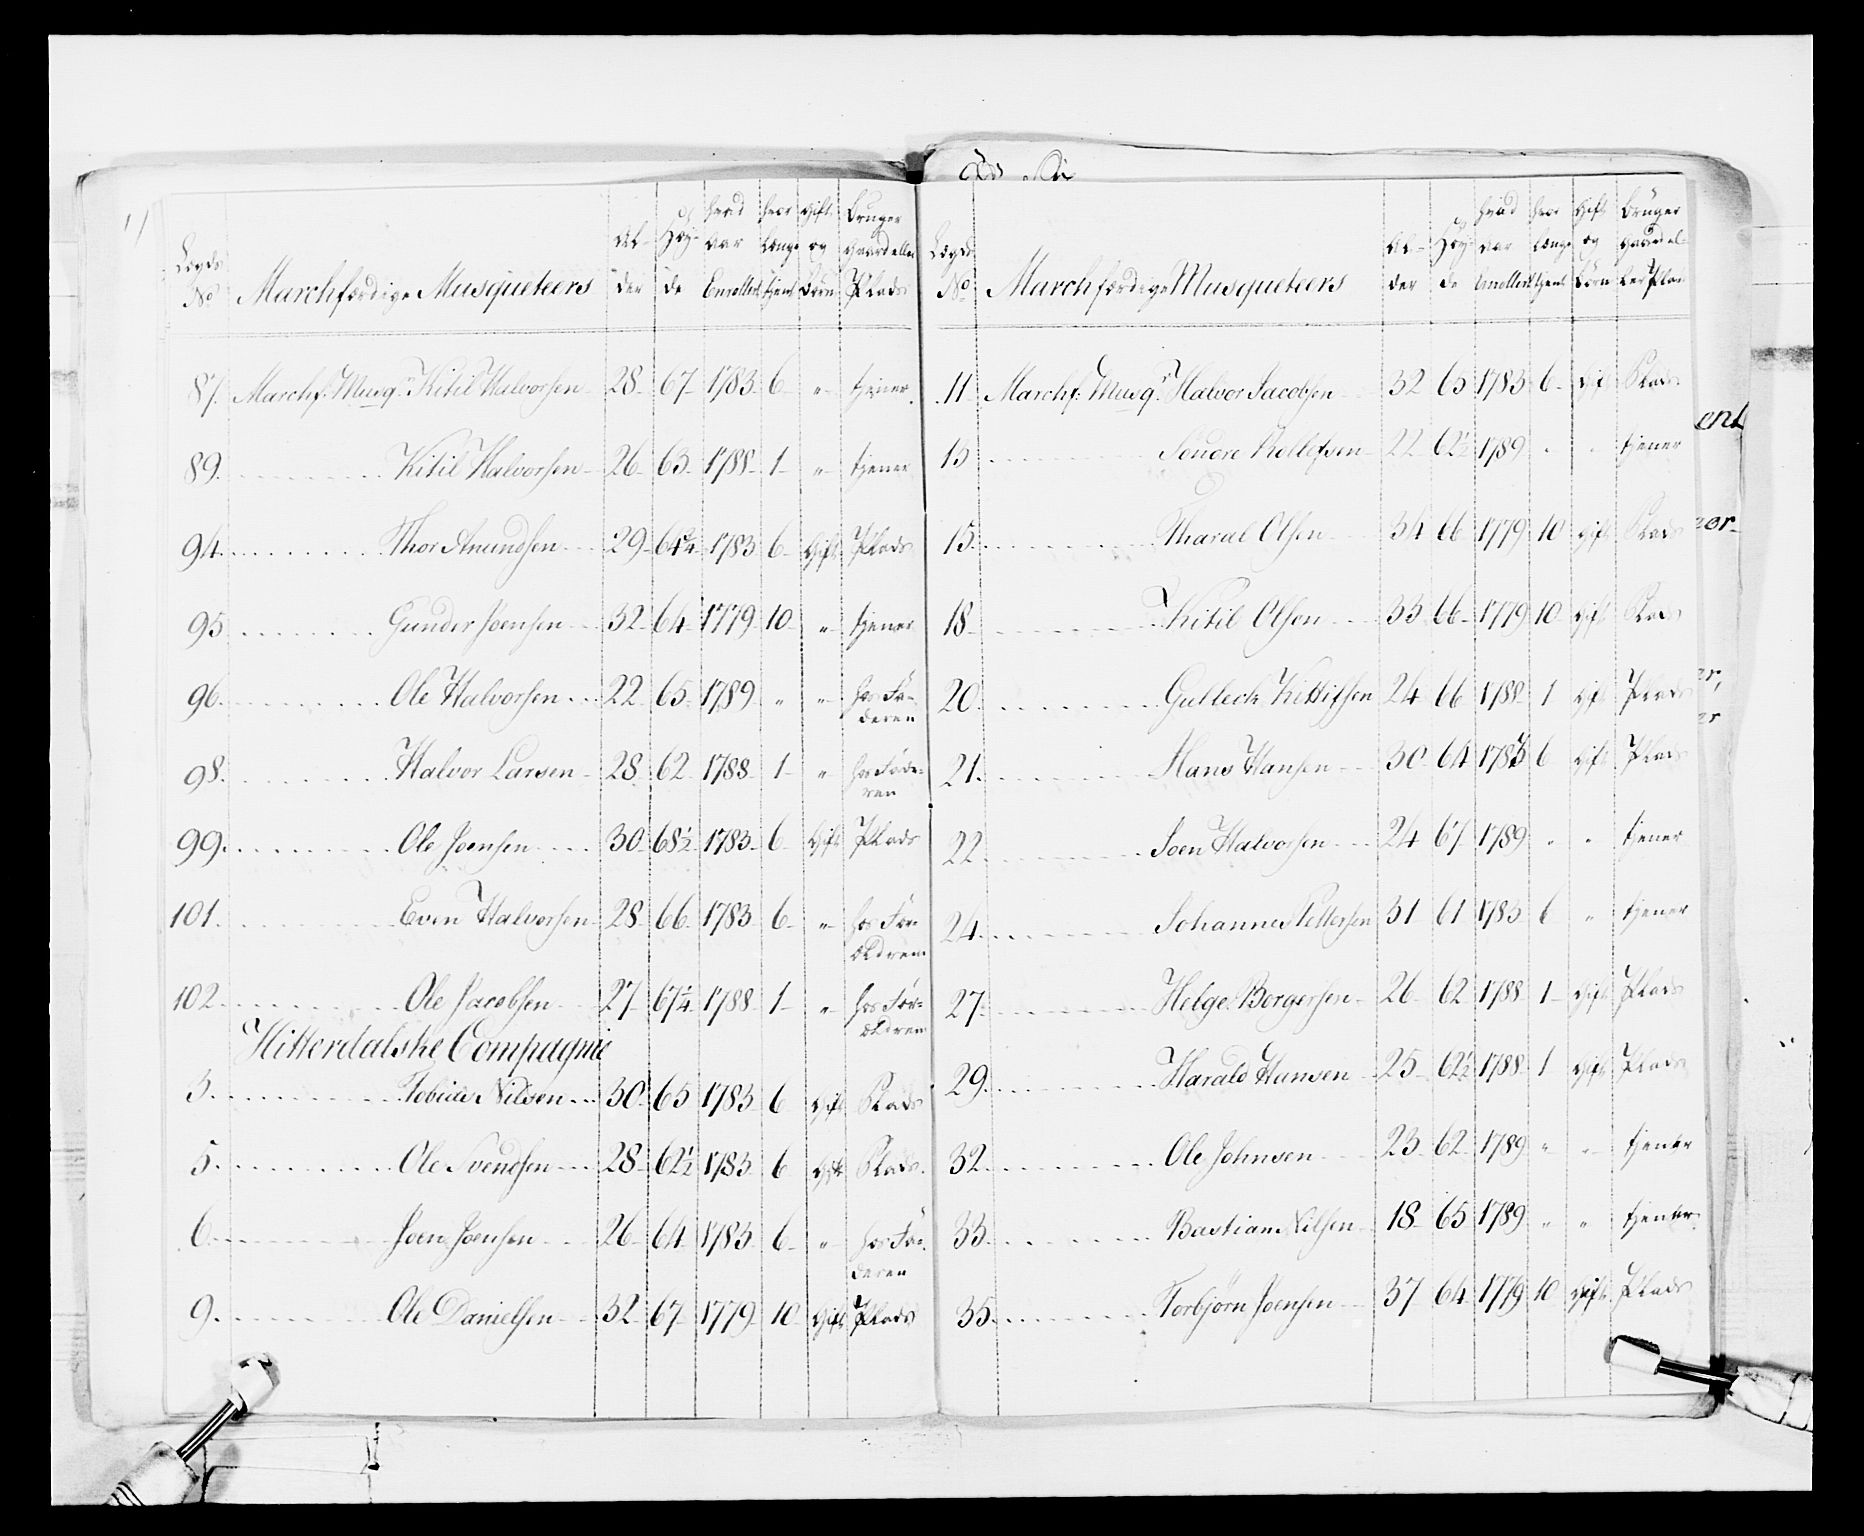 Lægds No Marchfærdige Musqueteers Al- der Høy- de hvad aar Enrollert hvor længe tjent Gift og Børn Bruger gaard eller Plads
87. Marchf: Musqr. Kitil Halvorsen 28 67 1783 6 " tjener
89. Kitil Halvorsen 26 63 1788 1 " tjener
94. Thor Amundsen 29 64 3/4 1783 6 Gift Plads
95 Gunder Joensen 32 64 1779 10 " tjener
96. Ole Halvorsen 22 65 1789 " " hos Fa-
deren
98. Halvor Larsen 28 62 1788 1 " hos Fade-
ren
99. Ole Joensen 30 68 1/2 1783 6 Gift Plads
101. Even Halvorsen 28 66 1783 6 " hos For-
ældrene
102 Ole Jacobsen 27 67 1/4 1788 1 " hos For-
ældrene
Hitterdalske Compagnie
3. Tobias Nilsen 30 65 1783 6 Gift Plads
5. Ole Svendsen 28 62 1/2 1783 6 Gift Plads
6. Joen Joensen 26 64 1783 6 " hos Fa-
deren
9. Ole Danielsen 32 67 1779 10 Gift Plads
Lægds No Marchfærdige Musqueteers Al- der Høy- de hvad aar Enrollert hvor længe tjent Gift og Børn Bruger gaard el- ler Plads
11 Marchf: Musqr. Halvor Jacobsen 32 65 1783 6 Gift Plads
13 Soure Kellefsen 22 62 1/2 1789 " " tjener
15. Tharal Olsen 34 66 1779 10 Gift Plads
18 Kitil Olsen 33 66 1779 10 Gift Plads
20. Gulleck Kittilsen 24 66 1788 1 Gift Plads
21. Hans Hansen 30 64 1783 6 Gift Plads
22. Joen Halvorsen 24 67 1789 " " tjener
24. Johannes Pettersen 31 61 1783 6 " tjener
27. Helge Borgersen 26 62 1788 1 Gift Plads
29. Harald Hansen 25 62 1/2 1788 1 Gift Plads
32. Ole Johnsen 23 62 1789 " " tjener
33. Bastian Nilsen 18 65 1789 " " tjener
35. Torbjörn Joensen 37 64 1779 10 Gift Plads